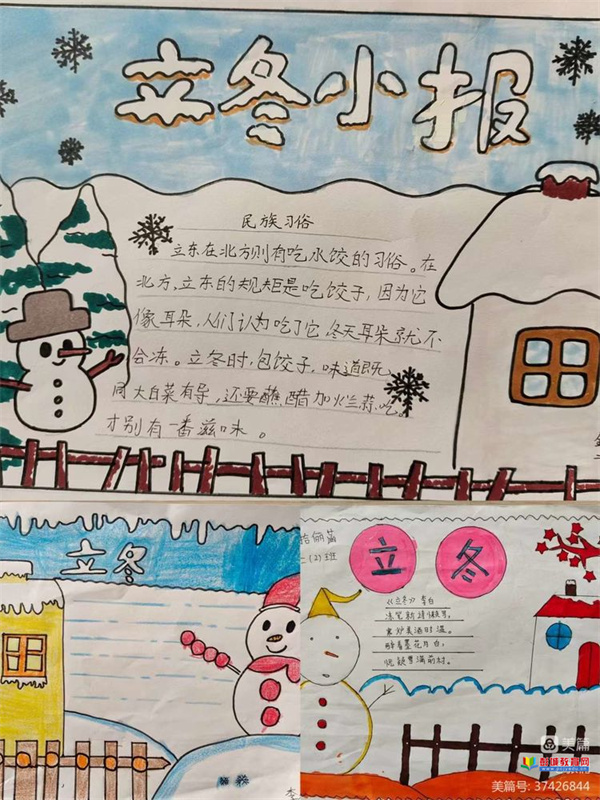 立冬小报
民族习俗
立东在北方则有吃水饺的习俗。在
北方,立东的规矩是吃饺子,因为它
像耳朵,人们认为吃了它冬天耳朵就不
会冻。立冬时,包饺子,味道既
同大白菜有导,还要蘸醋加烂蒜吃。
才别有一番滋味。
立冬
一(2)班
立冬
《立冬》 李白
冻笔新诗懒写,
寒炉美酒时温。
醉看墨花月白,
恍疑雪满前村。
美篇
教育网
美篇号: 37426844